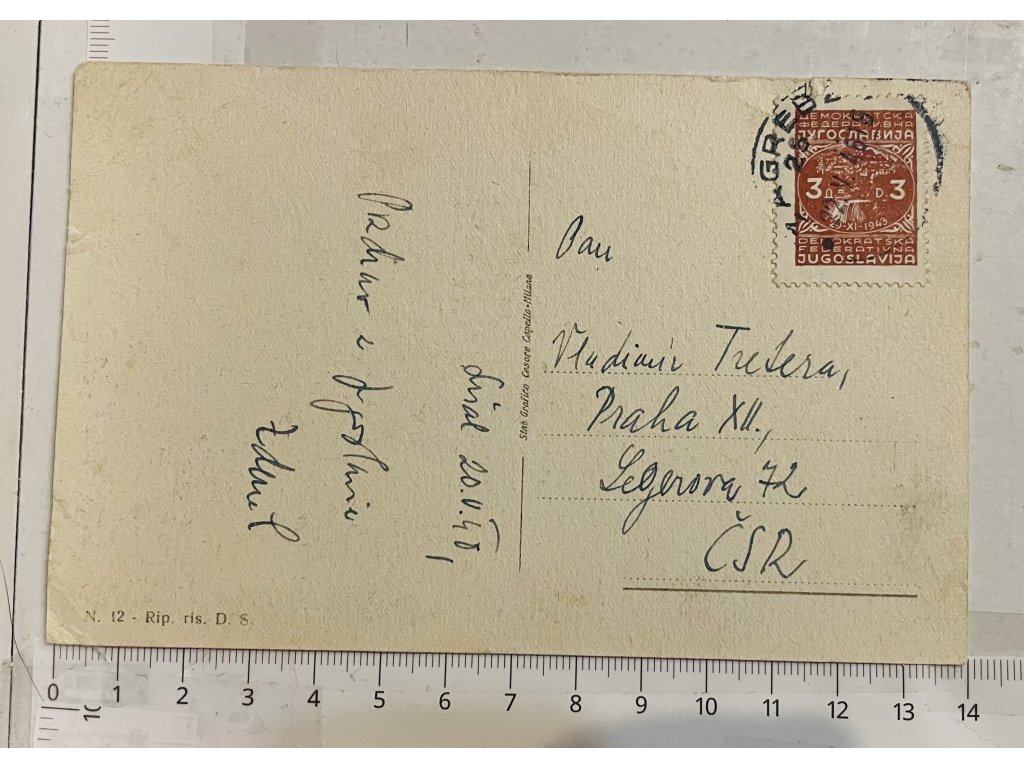 ZAGREB 2
26
22.V.48-18
ДЕМОКРАТСКА
ФЕДЕРАТИВНА
ЈУГОСЛАВИЈА
3 Д. D. 3
29-XI-1943
DEMOKRATSKA
FEDERATIVNA
JUGOSLAVIJA
Pan
Vladimír Tretera,
Praha XII.,
Legerova 72
ČSR
20.V.48,
Pozdrav z Jugoslavie
Stab. Grafico Cesare Capello-Milano
N. 12 - Rip. ris. D. S.
0 1 2 3 4 5 6 7 8 9 10 11 12 13 14
10